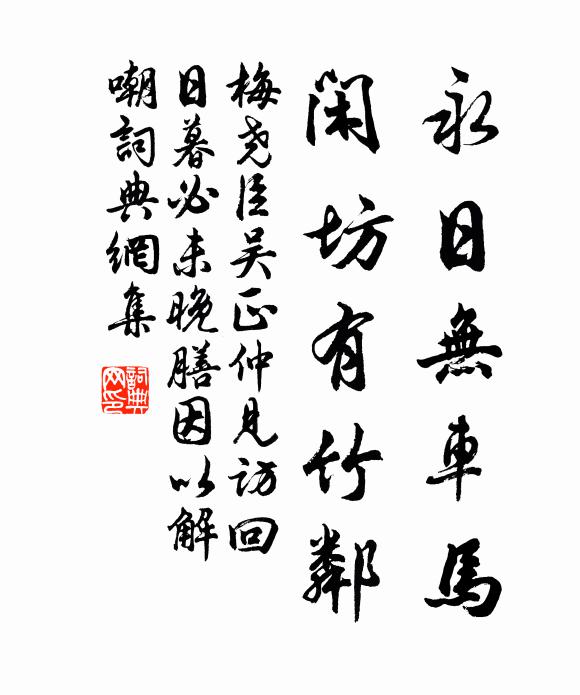 永日無車馬
閑坊有竹鄰
梅堯臣吴正仲見訪回
日暮必未晚膳因以解
嘲詞典網集
詞典网印